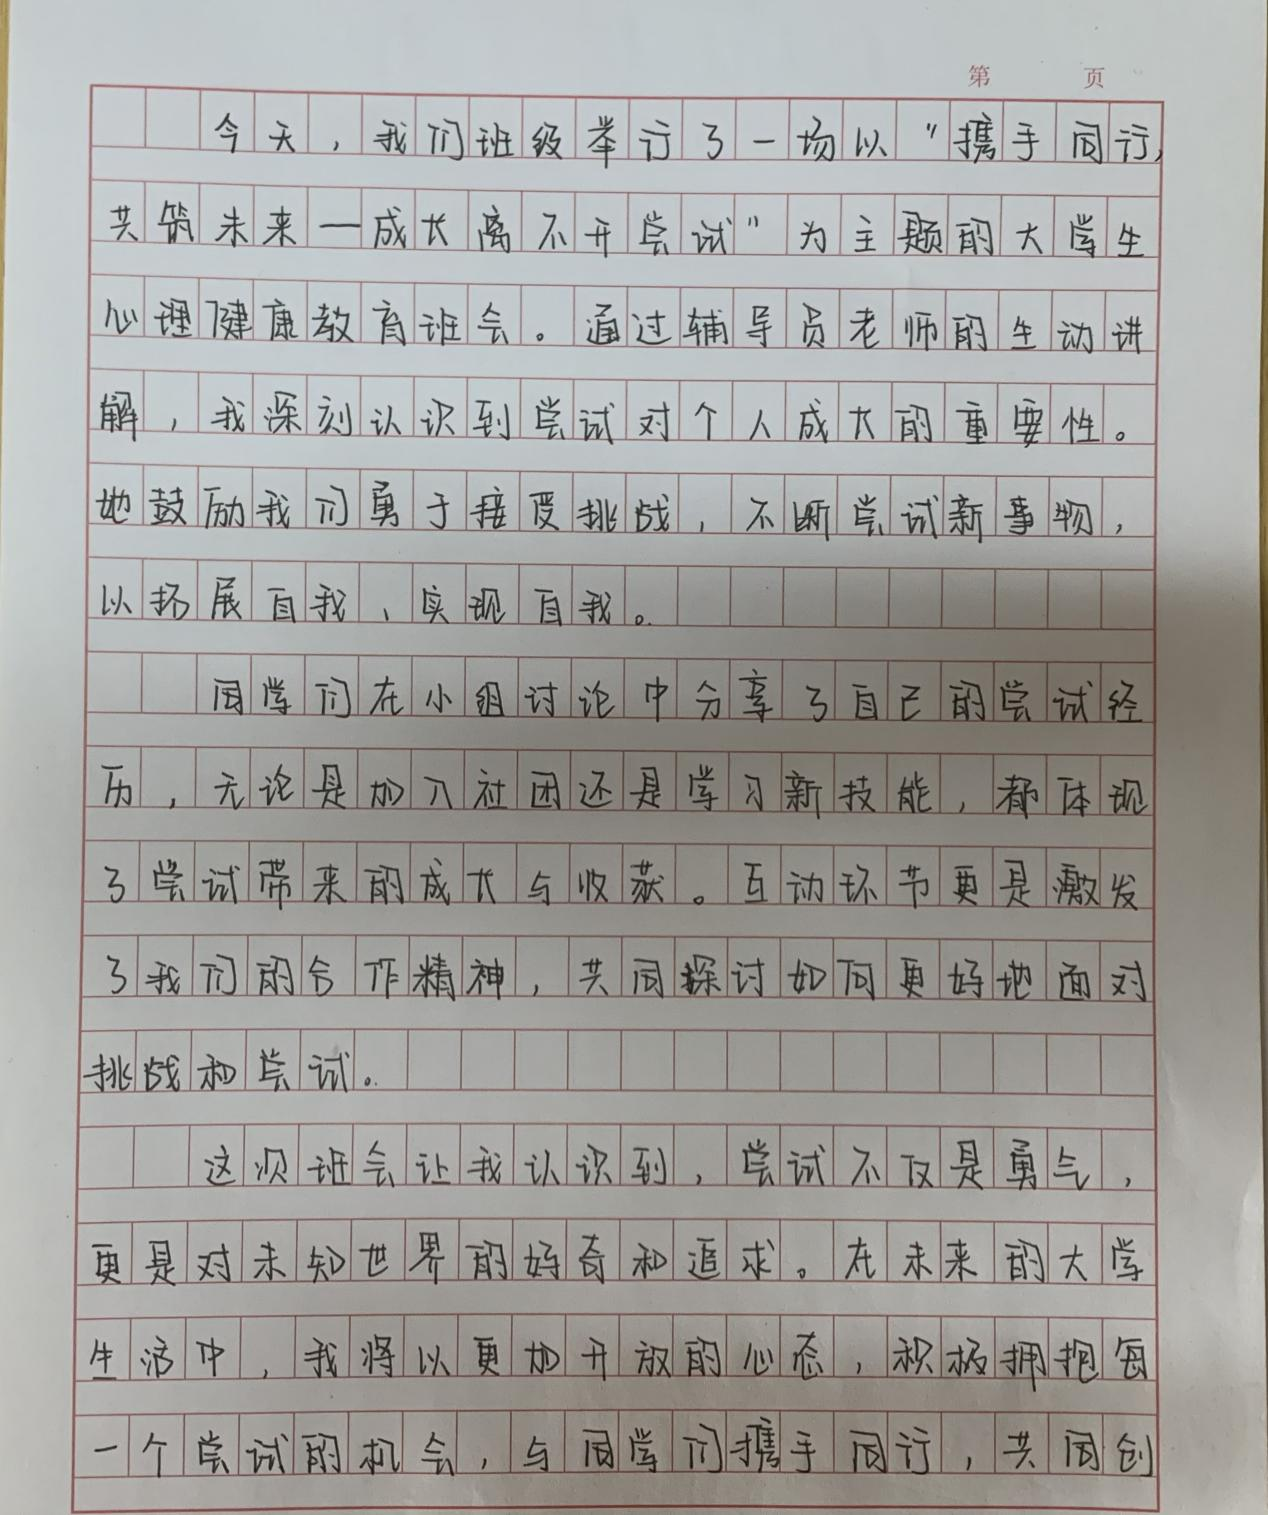 第 页
今天，我们班级举行了一场以"携手同行，
共筑未来—成长离不开尝试"为主题的大学生
心理健康教育班会。通过辅导员老师的生动讲
解，我深刻认识到尝试对个人成长的重要性。
她鼓励我们勇于接受挑战，不断尝试新事物，
以拓展自我、实现自我。
同学们在小组讨论中分享了自己的尝试经
历，无论是加入社团还是学习新技能，都体现
了尝试带来的成长与收获。互动环节更是激发
了我们的合作精神，共同探讨如何更好地面对
挑战和尝试。
这次班会让我认识到，尝试不仅是勇气，
更是对未知世界的好奇和追求。在未来的大学
生活中，我将以更加开放的心态，积极拥抱每
一个尝试的机会，与同学们携手同行，共同创